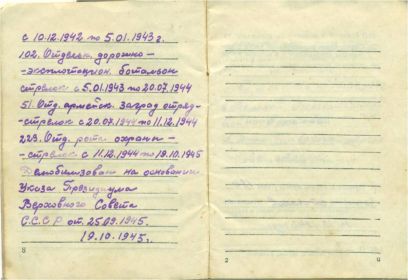 с 10.12.1942 по 5.01.1943 г.
102. Отдельн. дорожно-
-эксплотацион. ботальон
стрелок с 5.01.1943 по 20.07.1944
51. Отд. армейск. заград отряд-
-стрелок с 20.07.1944 по 11.12.1944
223. Отд. рота охраны -
-стрелок с 11.12.1944 по 19.10.1945
Демобилизован на основании
Указа Президиума
Верховного Совета
С.С.С.Р от. 25.09.1945.
19.10.1945.
8
2